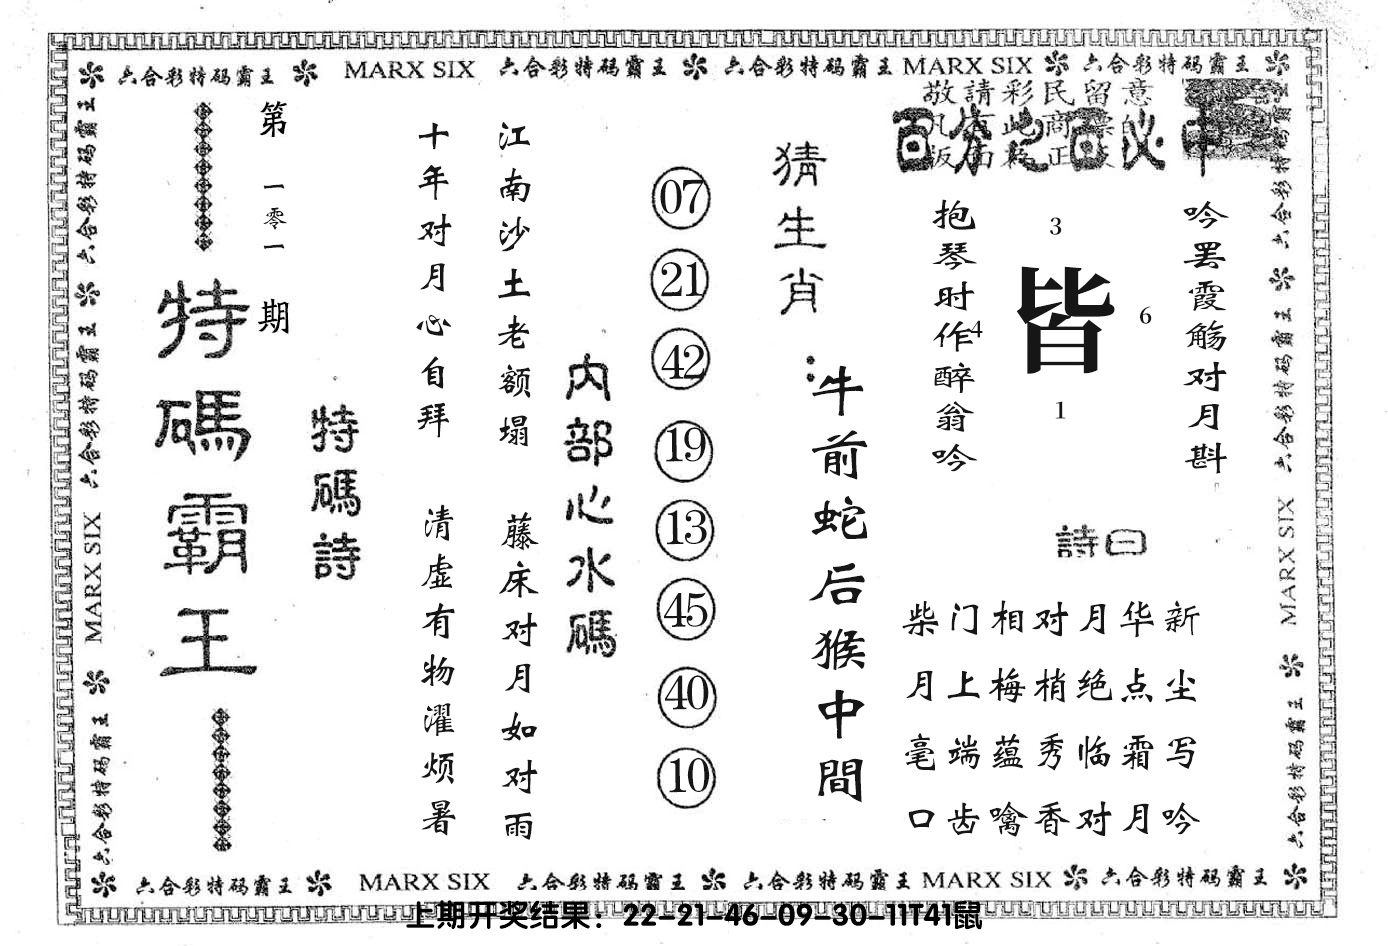 六合彩特码霸王 MARX SIX 六合彩特码霸王 六合彩特码霸王 MARX SIX 六合彩特码霸王
六合彩特码霸王 六合彩特码霸王 MARX SIX 六合彩特码霸王
第一零一期
特碼霸王
特碼詩
十年对月心自拜
清虚有物濯烦暑
江南沙土老额塌
藤床对月如对雨
内部心水碼
07
21
42
19
13
45
40
10
猜生肖:
牛前蛇后猴中間
敬請彩民留意
百分之百必中
抱琴时作醉翁吟
3
皆
4
6
1
吟罢霞觞对月斟
詩曰
柴门相对月华新
月上梅梢绝点尘
毫端蕴秀临霜写
口齿噙香对月吟
六合彩特码霸王 六合彩特码霸王 MARX SIX 六合彩特码霸王
六合彩特码霸王 MARX SIX 六合彩特码霸王 六合彩特码霸王 MARX SIX 六合彩特码霸王
上期开奖结果：22-21-46-09-30-11T41鼠